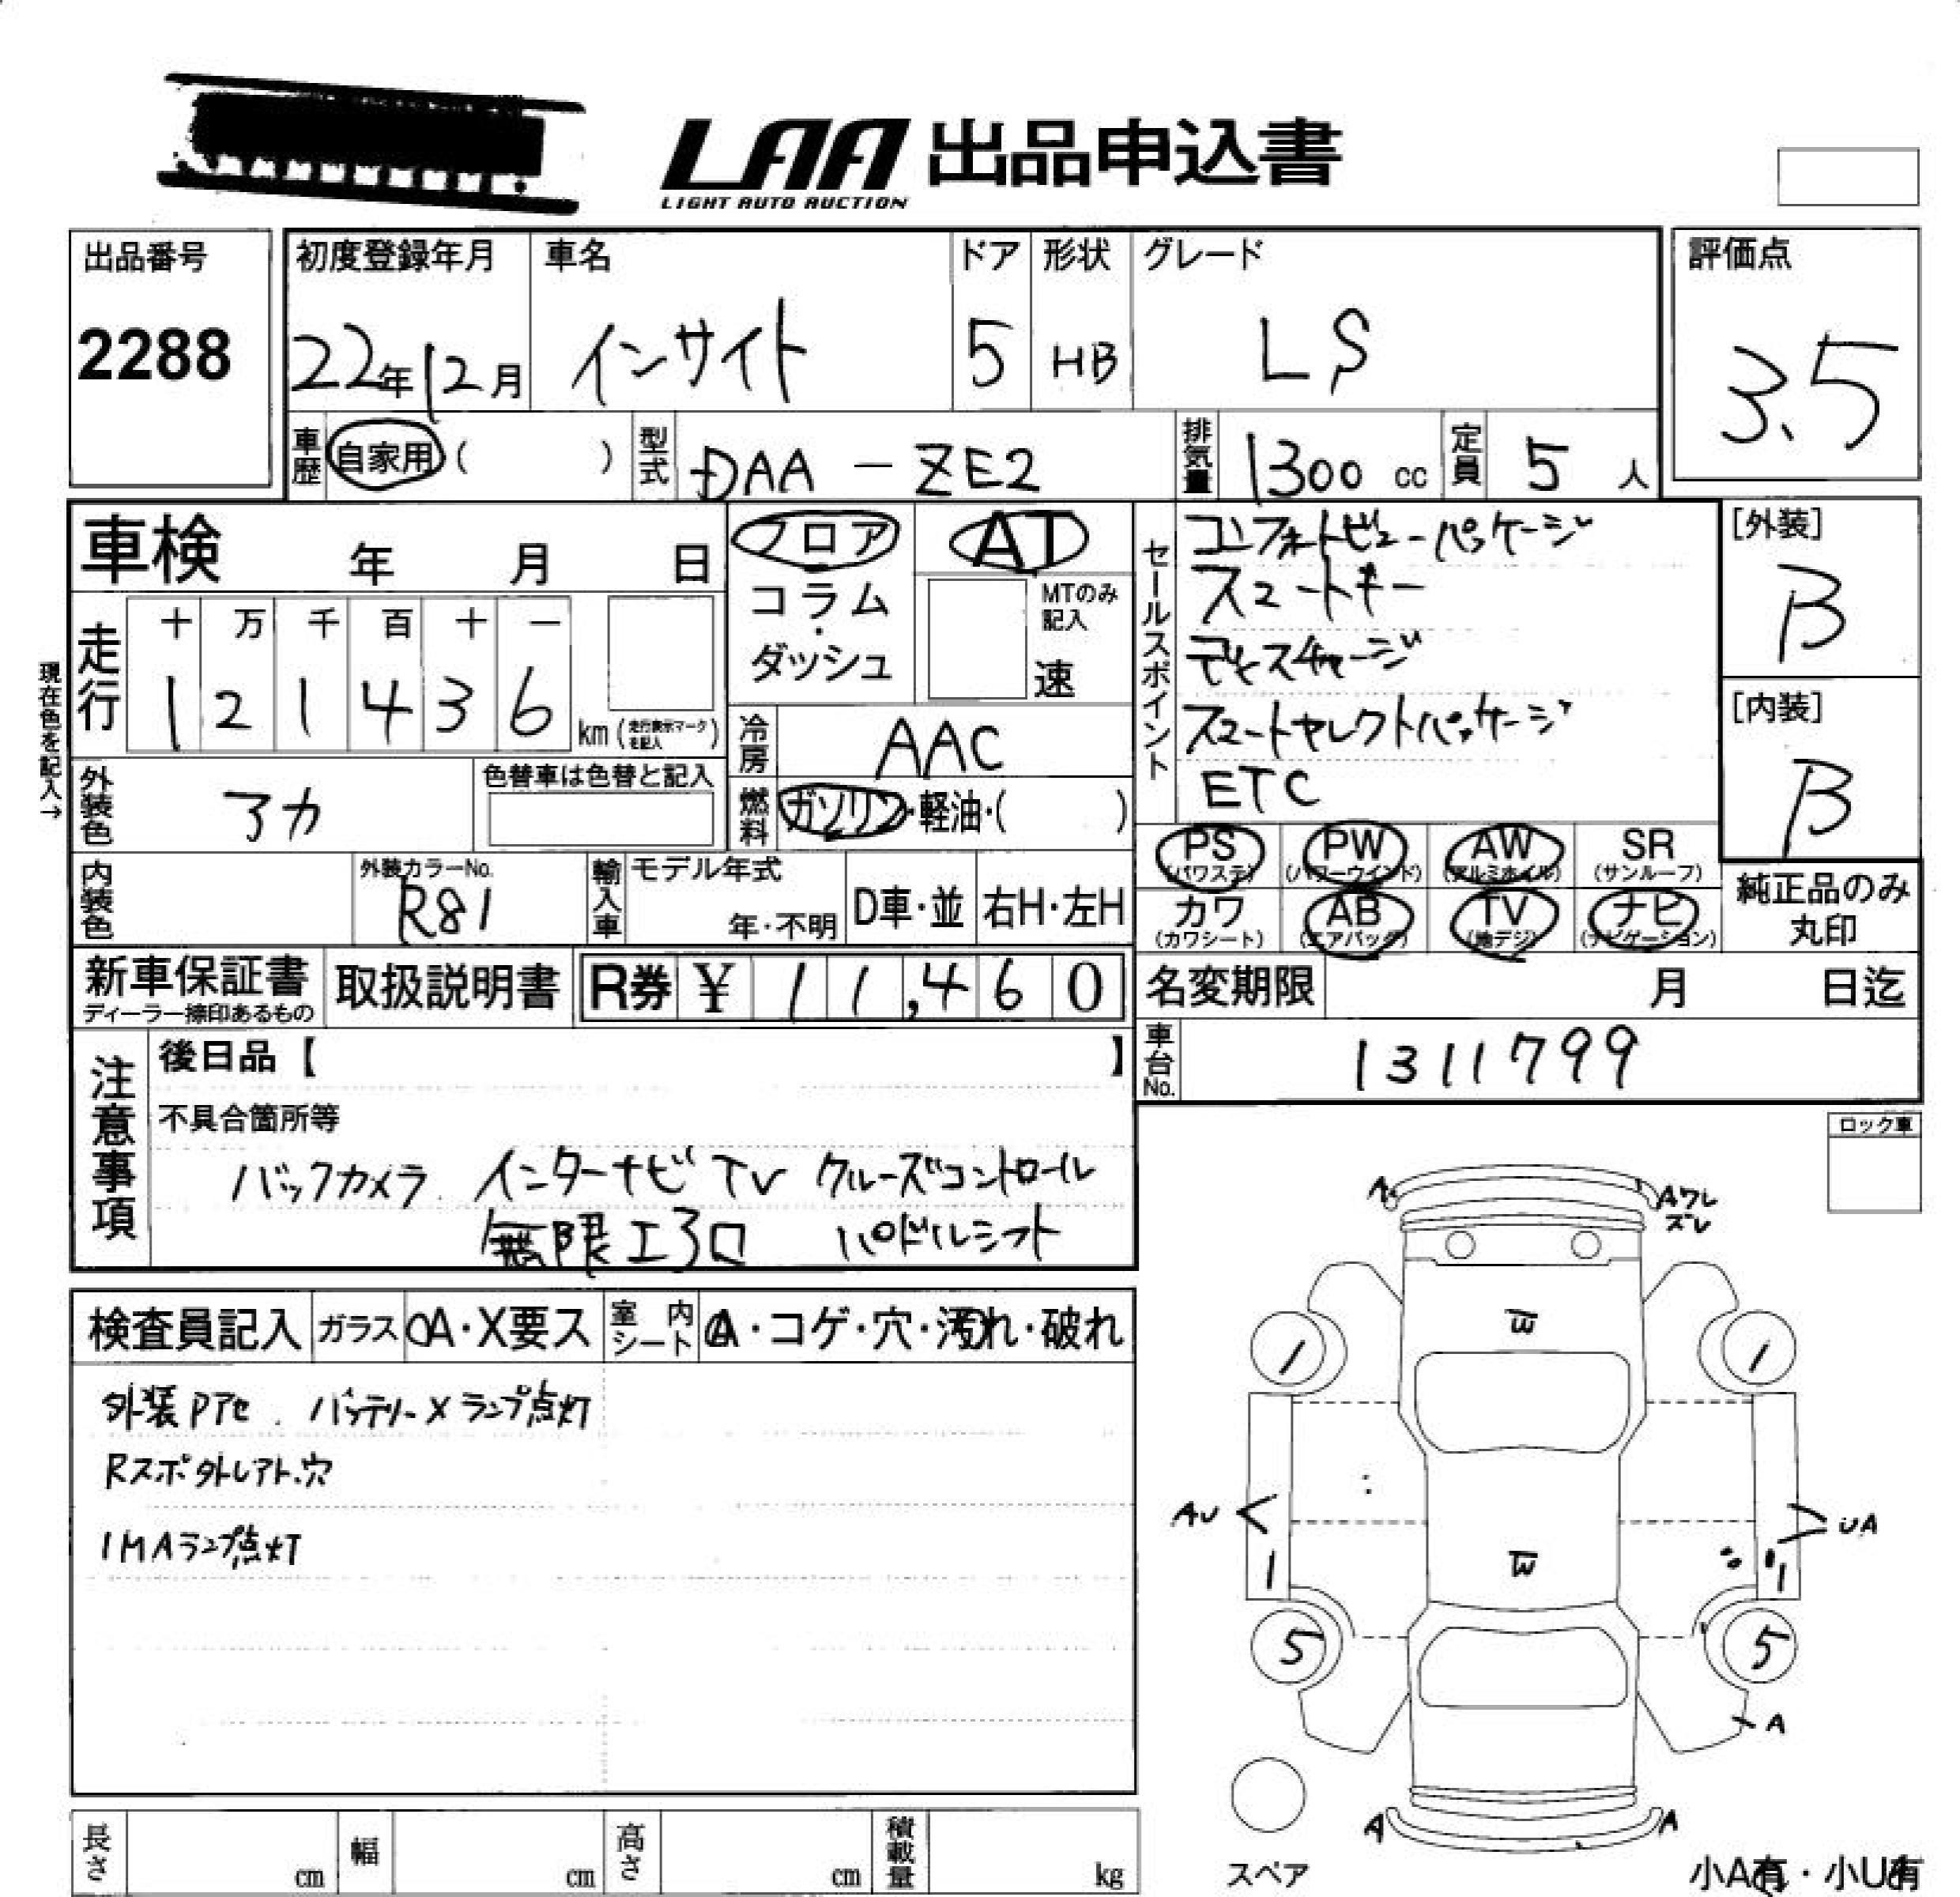 LAA 出品申込書
LIGHT AUTO AUCTION
出品番号
2288
初度登録年月
22年12月
車名
インサイト
ドア
5
形状
HB
グレード
LS
評価点
3.5
車歴 自家用 ( )
型式 DAA－ZE2
排気量 1300 cc
定員 5 人
車検 年 月 日
フロア
コラム
・
ダッシュ
AT
MTのみ
記入
速
セールスポイント
コンフォートビューパッケージ
スマートキー
ディスチャージ
スマートセレクトパッケージ
ETC
[外装]
B
[内装]
B
現在色を記入→
走行
十 万 千 百 十 一
1 2 1 4 3 6
km (走行表示マークを記入)
冷房 AAC
燃料 ガソリン・軽油・( )
外装色 アカ
色替車は色替と記入
内装色
外装カラーNo.
R81
輸入車
モデル年式
年・不明
D車・並
右H・左H
PS
(パワステ)
PW
(パワーウインド)
AW
(アルミホイル)
SR
(サンルーフ)
カワ
(カワシート)
AB
(エアバッグ)
TV
(地デジ)
ナビ
(ナビゲーション)
純正品のみ
丸印
新車保証書
ディーラー捺印あるもの
取扱説明書
R券 ¥ 11,460
名変期限 月 日迄
車台No. 1311799
注意事項
後日品【 】
不具合箇所等
バックカメラ インターナビ TV クルーズコントロール
無限エアロ パドルシフト
ロック車
検査員記入
ガラス
A・X要ス
室内シート
A・コゲ・穴・汚れ・破れ
外装Pアセ バッテリーXランプ点灯
Rスポ外しアト.穴
IMAランプ点灯
A
Aワレ
ズレ
W
1
1
AU
UA
1
W
1
5
5
A
A
A
スペア
小A有・小U有
長さ cm
幅 cm
高さ cm
積載量 kg